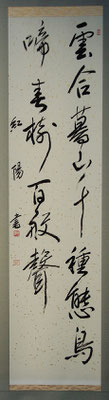 雲合暮山千種態鳥
啼春樹百般聲
紅陽書